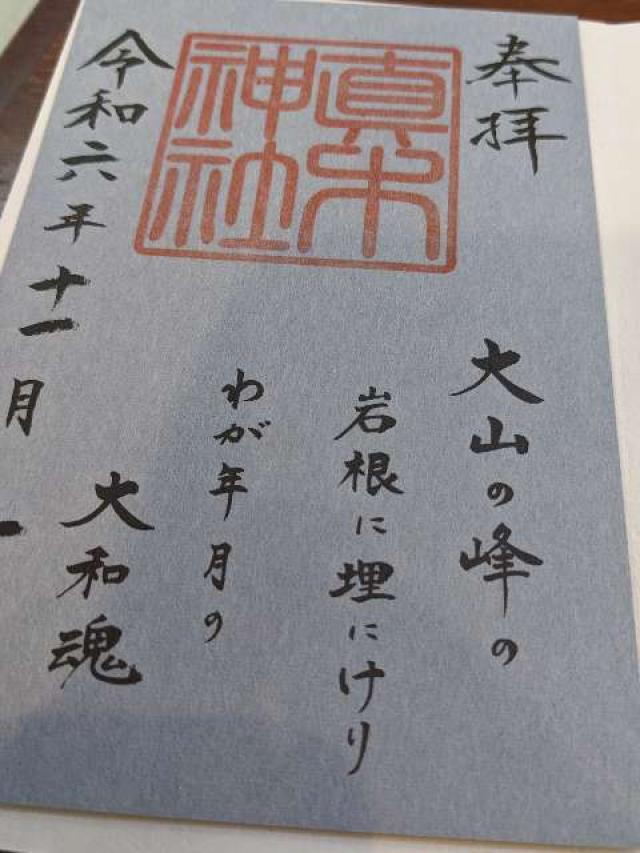 奉拝
真木神社
大山の峰の
岩根に埋にけり
わが年月の
大和魂
令和六年十一月一